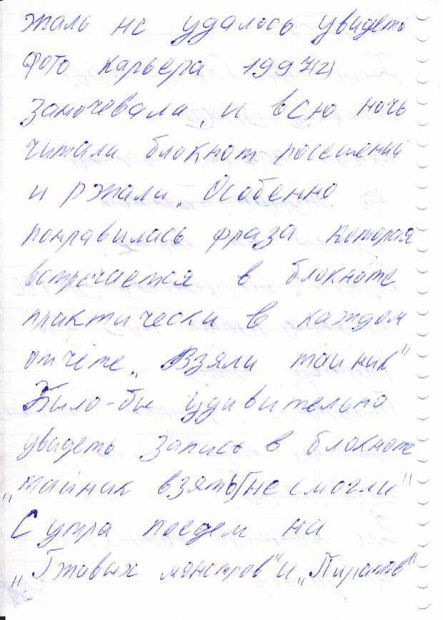 жаль не удалось увидеть
фото карьера 1997(2)
заночевали, и всю ночь
читали блокнот посещений
и ржали. Особенно
понравилась фраза которая
встречается в блокноте
практически в каждом
отчете „Взяли тайник"
Было-бы удивительно
увидеть запись в блокноте
„тайник взять не смогли"
С утра поедем на
„Ржавых монстров" и „Пиратов"